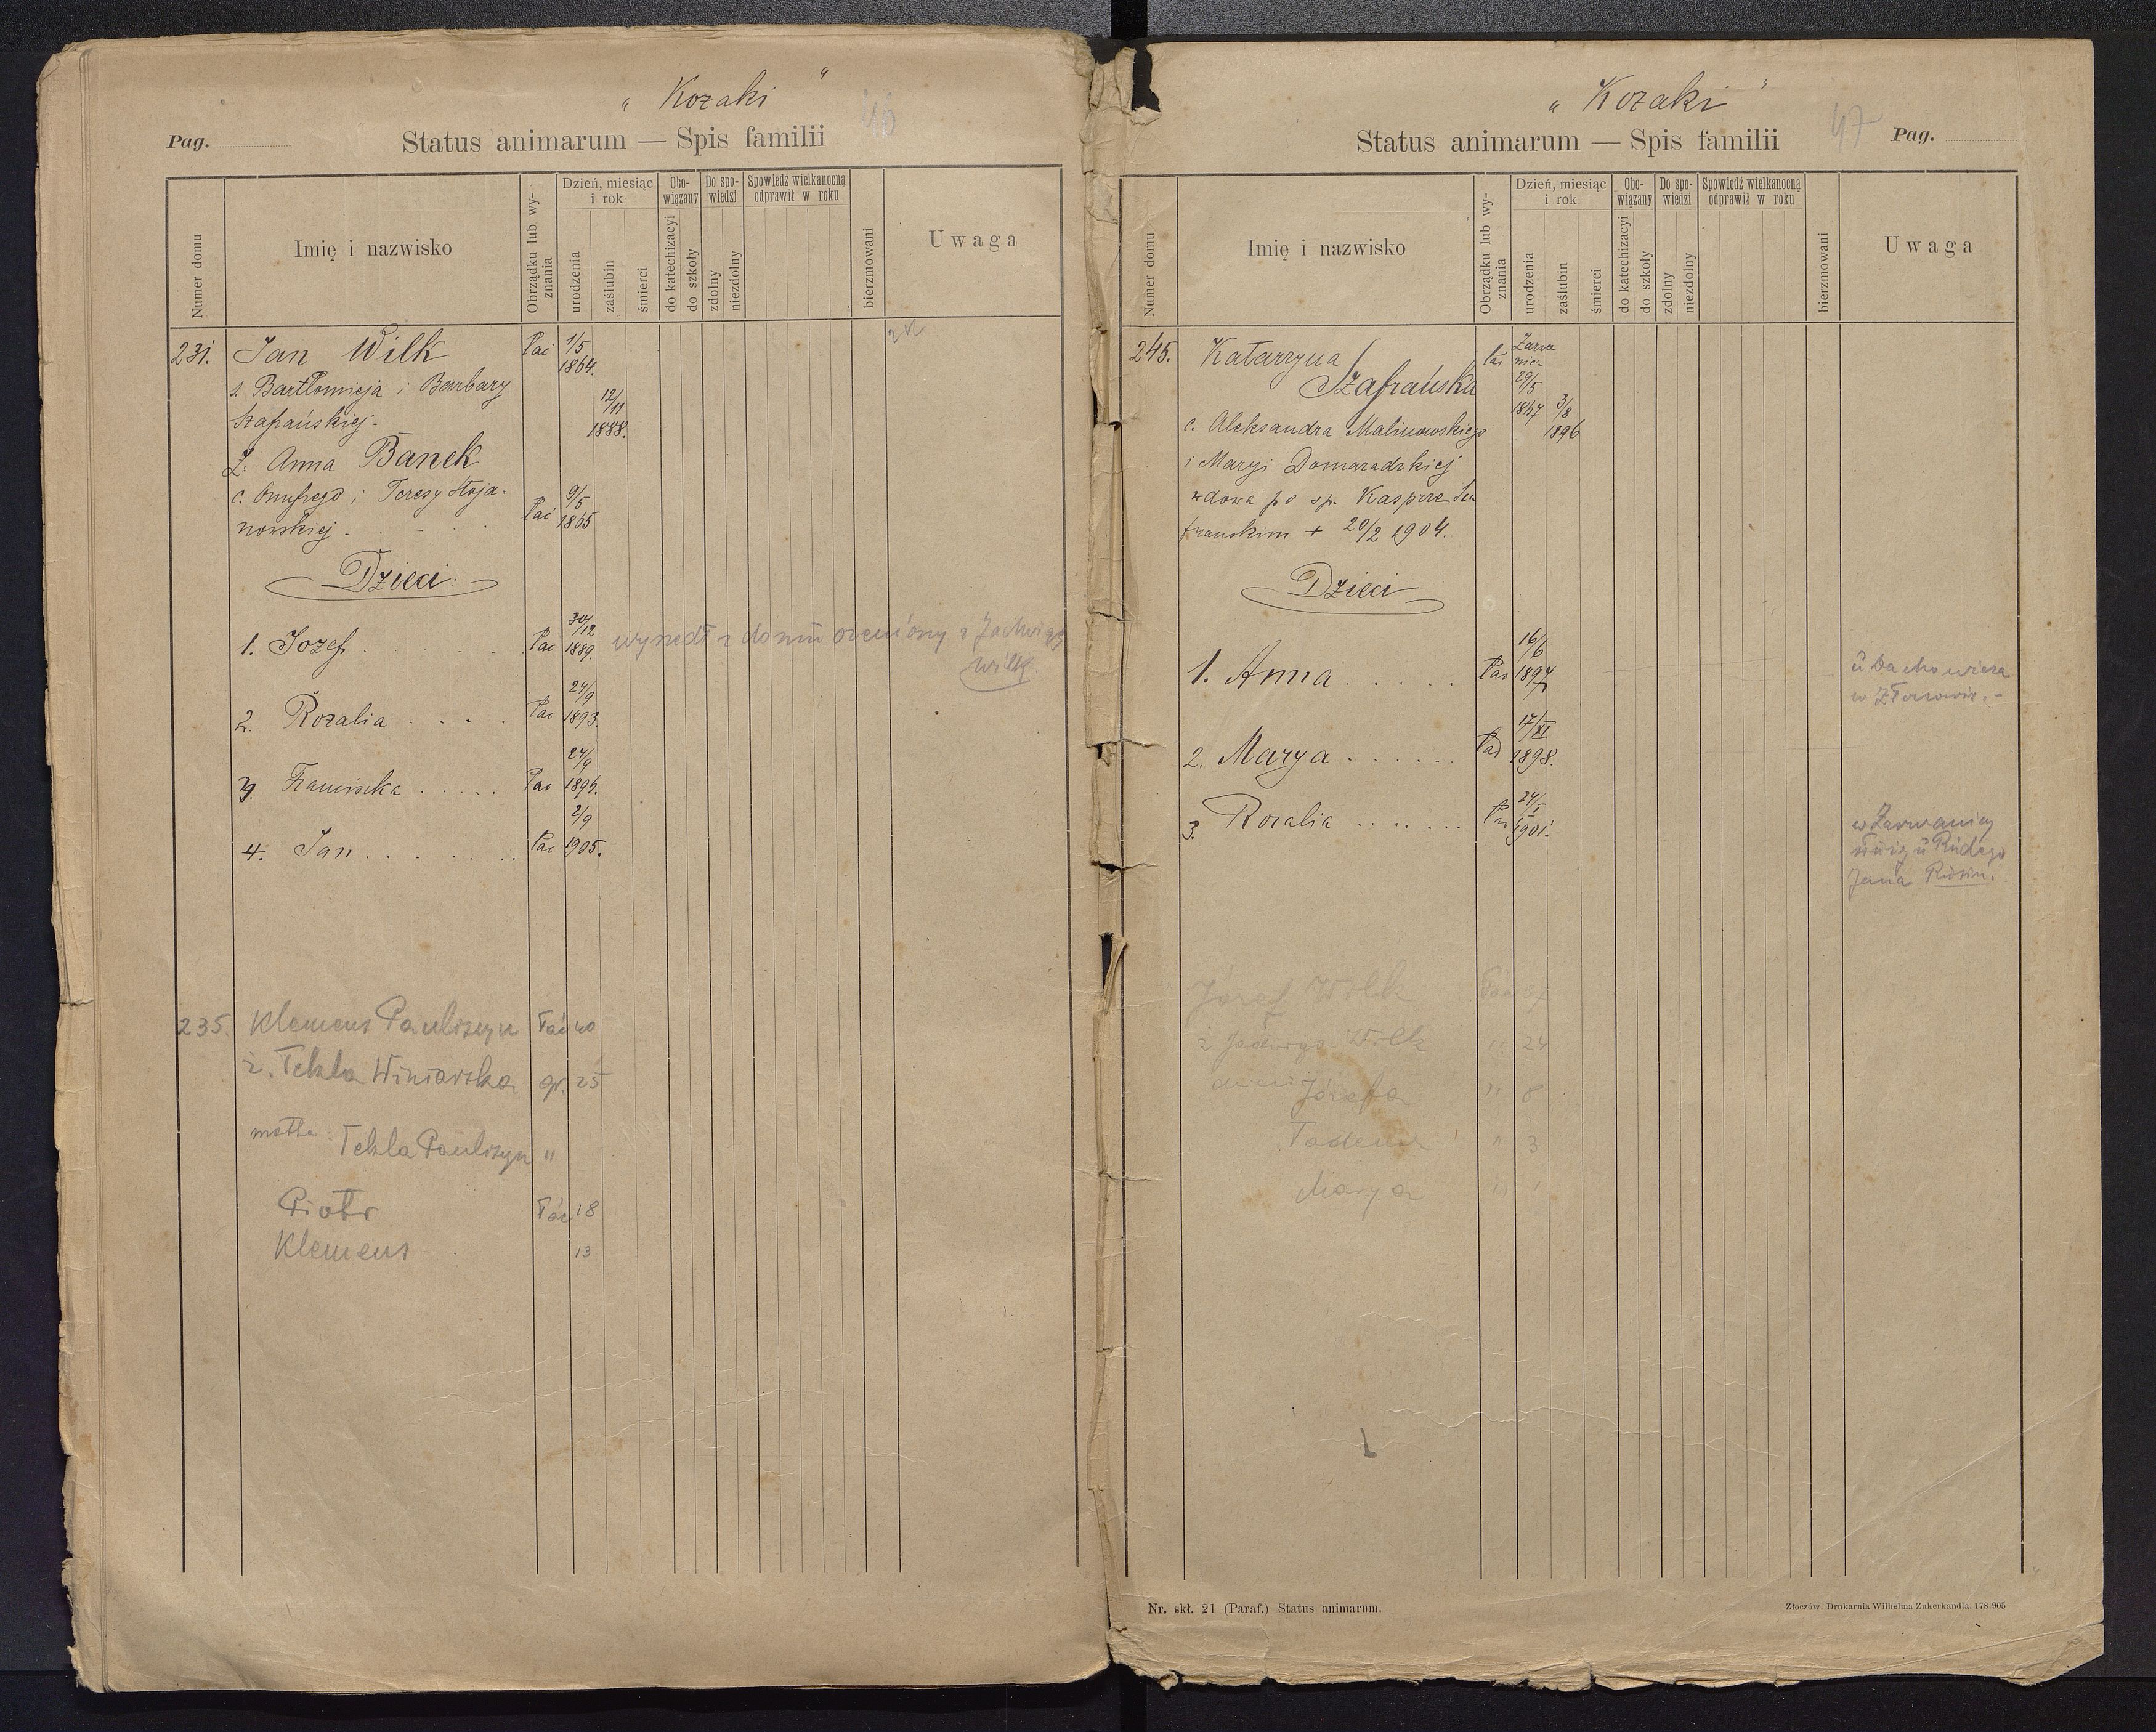 „ Kozaki "
46
Pag.
Status animarum — Spis familii
Numer domu
Imię i nazwisko
Obrządku lub wyznania
Dzień, miesiąc i rok
urodzenia
zaślubin
śmierci
Obowiązany
do katechizacyi
do szkoły
Do spowiedzi
zdolny
niezdolny
Spowiedź wielkanocną odprawił w roku
bierzmowani
Uwaga
231. Jan Wilk Łać 1/5 1864.
s. Bartłomieja i Barbary
Szafrańskiej - 12/11 1888.
Ż. Anna Banek
c. Onufrego i Teresy Stoja-
nowskiej . Łać 9/5 1865
Dzieci
1. Jozef Łac 30/12 1889. wyszedł z domu ożeniony z Jadwigą
Wilk.
2. Rozalia Łac 24/9 1893.
3. Franciszka Łac 24/9 1896.
4. Jan Łac 2/9 1905.
235. Klemens Pauliszyn Łać 40
ż. Tekla Winiarska gr. 25
matka Tekla Pauliszyn "
Piotr Łać 18
Klemens 13
„ Kozaki "
47
Status animarum — Spis familii
Pag.
Numer domu
Imię i nazwisko
Obrządku lub wyznania
Dzień, miesiąc i rok
urodzenia
zaślubin
śmierci
Obowiązany
do katechizacyi
do szkoły
Do spowiedzi
zdolny
niezdolny
Spowiedź wielkanocną odprawił w roku
bierzmowani
Uwaga
245. Katarzyna
Szafrańska 29/5 3/8 1896
c. Aleksandra Malinowskiego
i Maryi Domaradzkiej
wdowa po sp. Kasprze Sza
franskim + 20/2 1904.
Dzieci
1. Anna Łac 16/6 1897
w Złoczowie. -
2. Marya Łać 17/XI 1898.
3. Rozalia Łac 24/I 1901.
w Zarwanicy
służy u Rudego
Jana
Józef Wilk
ż Jadwiga Wilk " 24
dzieci Józefa " 8
Tadeusz " 3
Marya " 1
Nr. skł. 21 (Paraf.) Status animarum.
Złoczów. Drukarnia Wilhelma Zukerkandla. 178|905